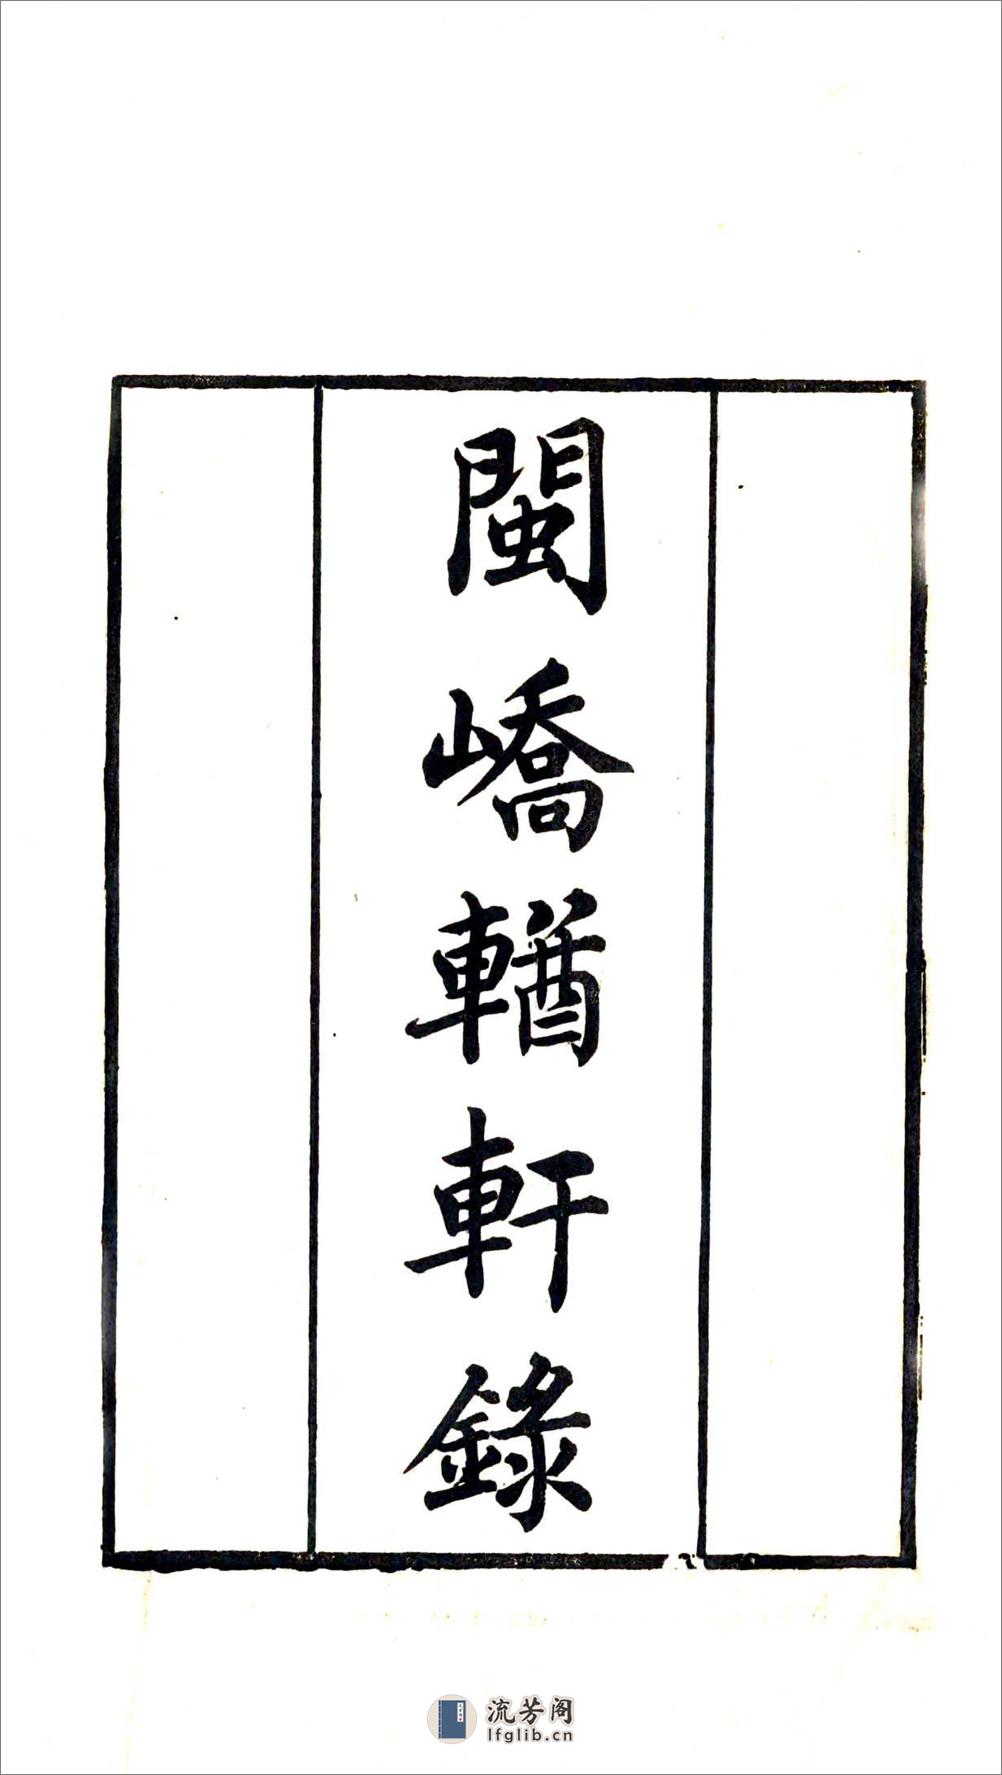 閩嶠輶軒錄
流芳阁
lfglib.cn